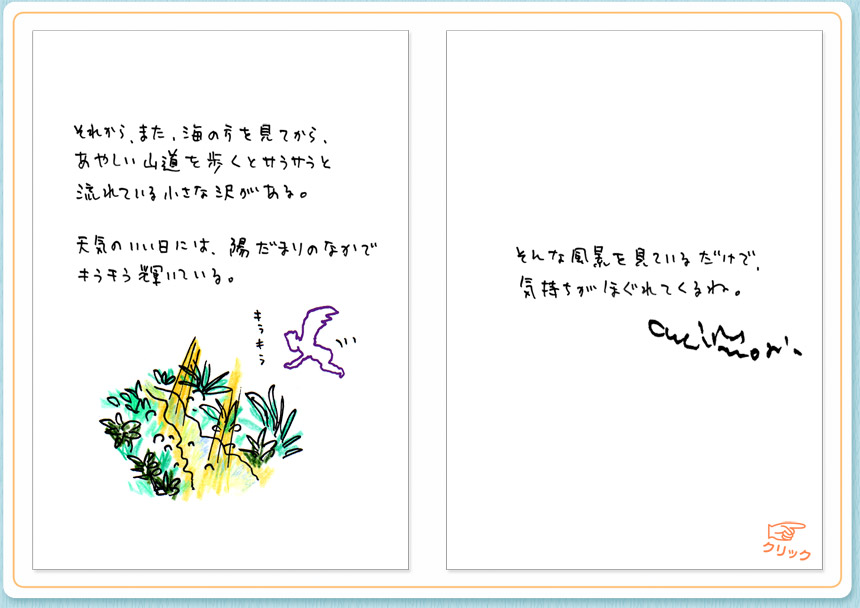 それから、また、海の方を見てから、
あやしい山道を歩くとサラサラと
流れている小さな沢がある。
天気のいい日には、陽だまりのなかで
キラキラ輝いている。
キラキラ
そんな風景を見ているだけで、
気持ちがほぐれてくるね。
クリック